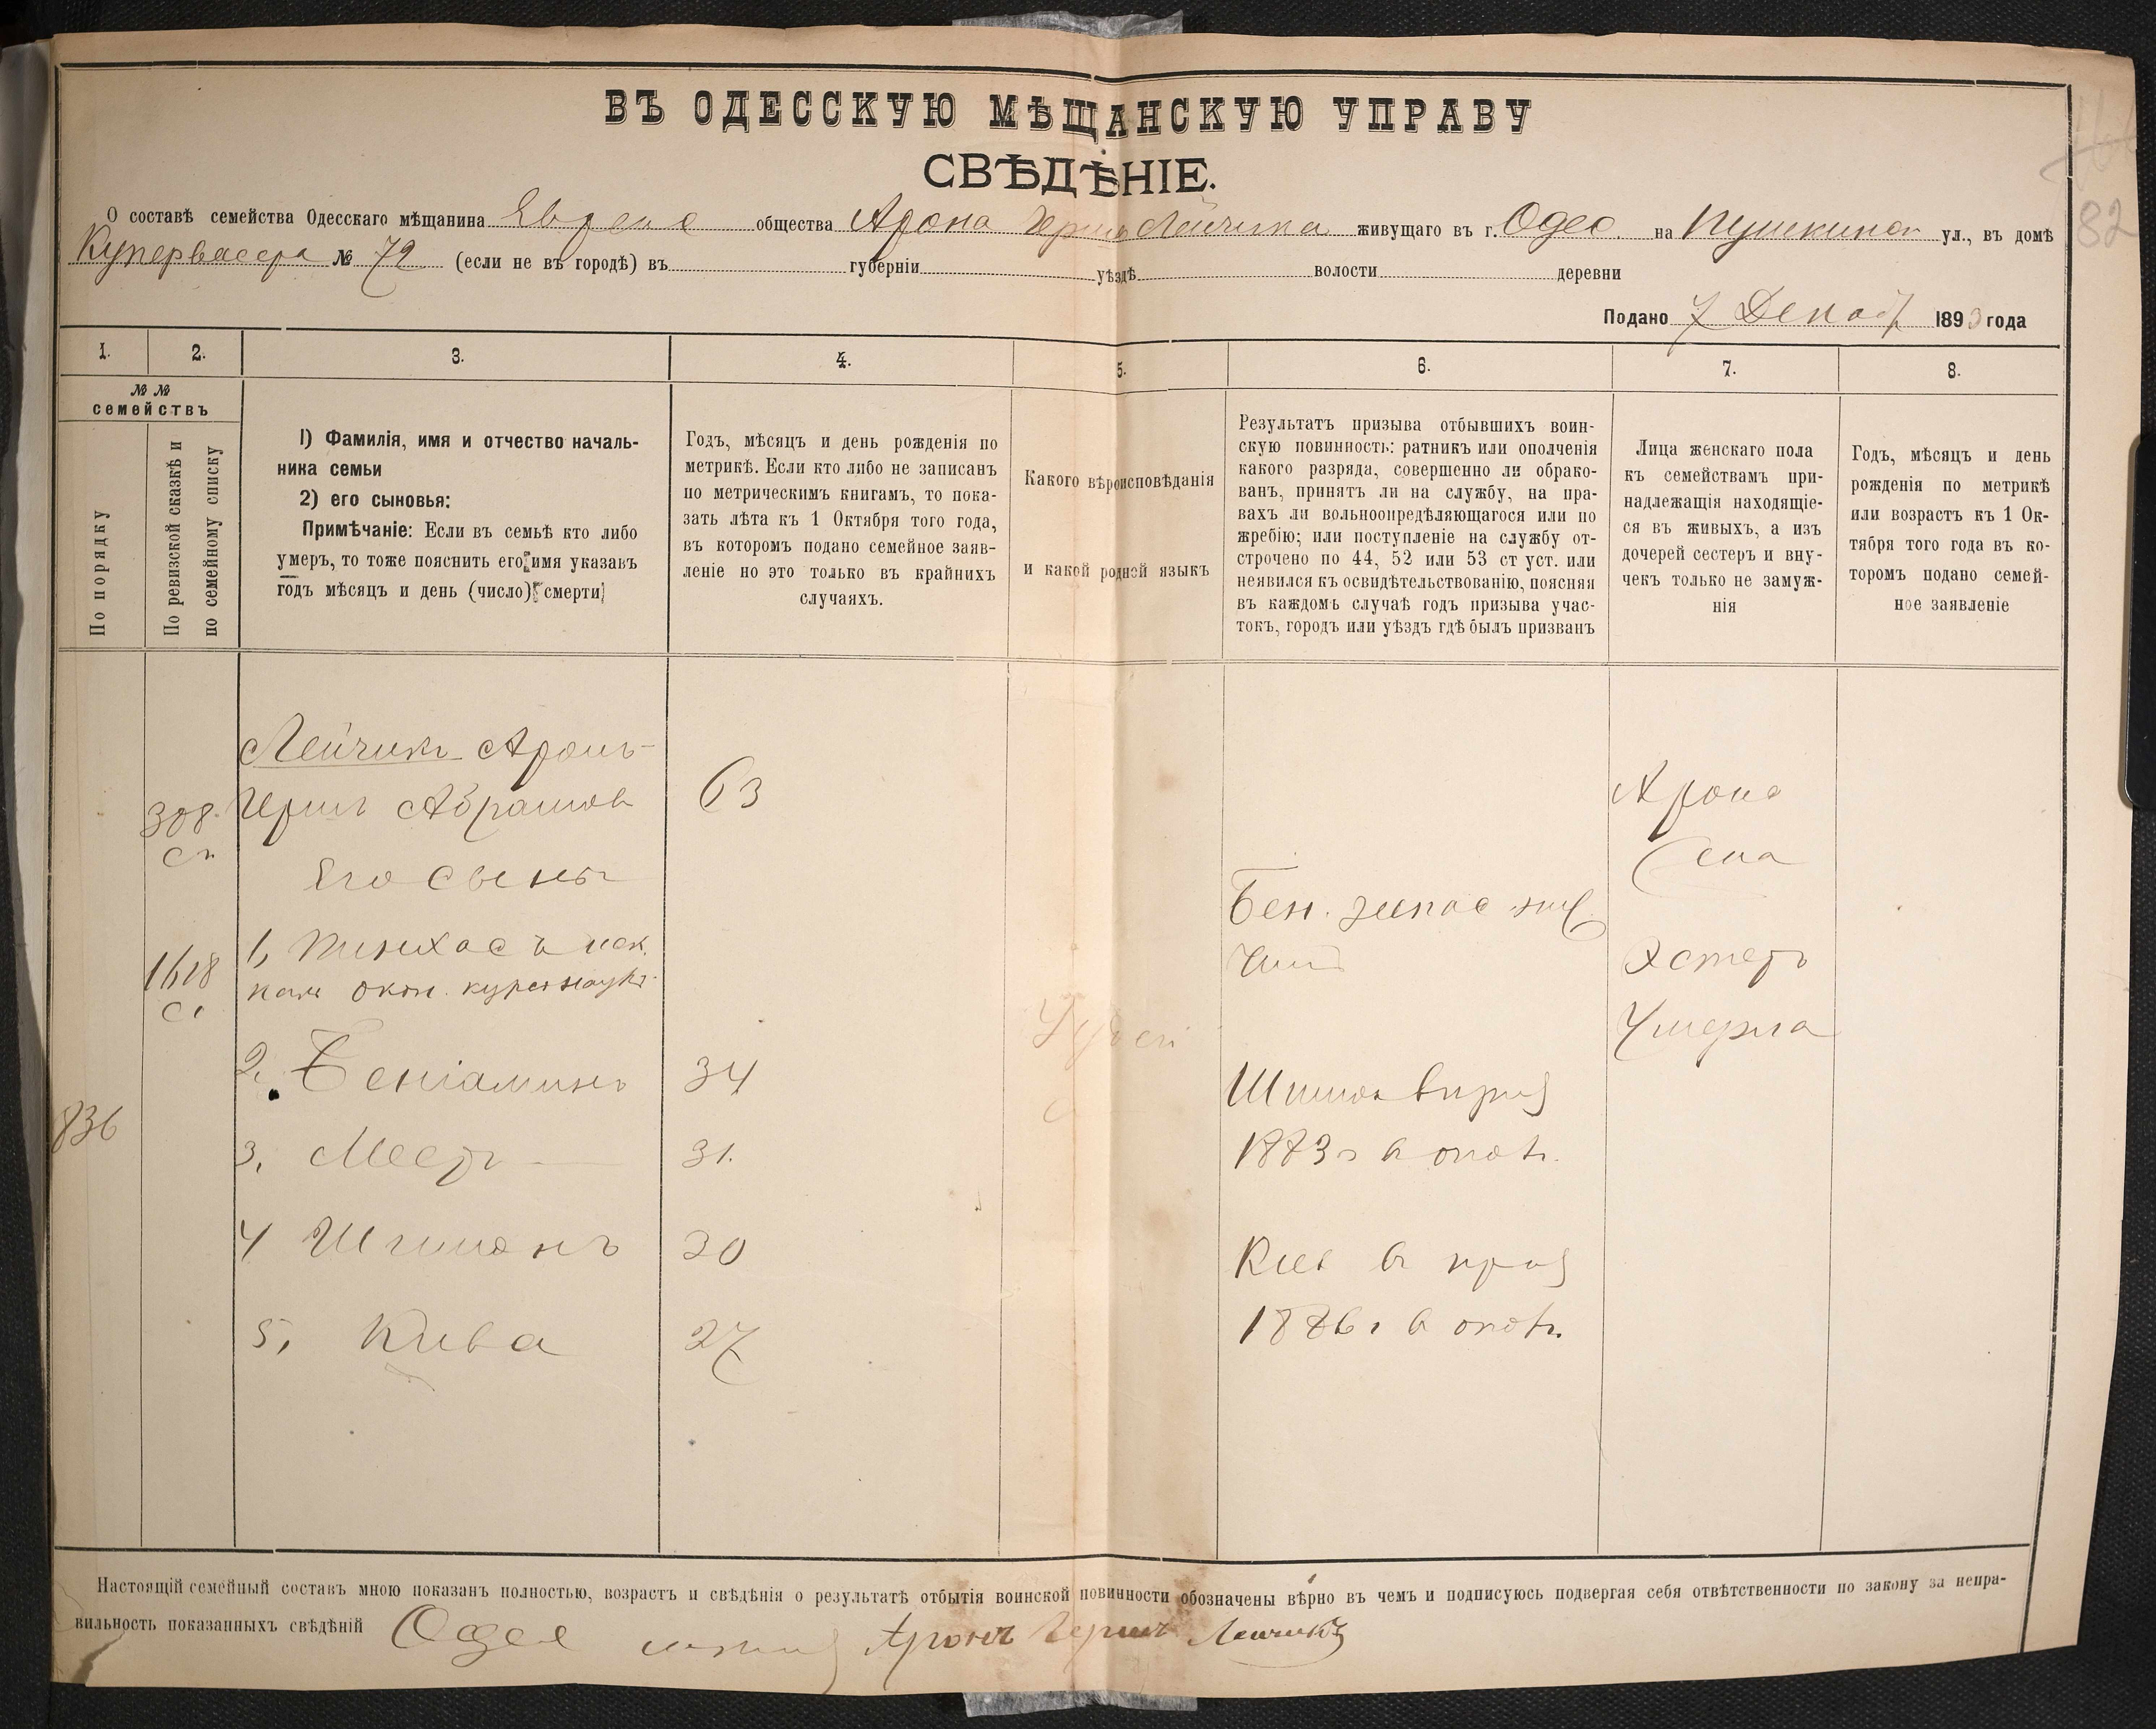 ВЪ ОДЕССКУЮ МѢЩАНСКУЮ УПРАВУ
СВѢДѢНІЕ.
О составѣ семейства Одесскаго мѣщанина Еврея общества Арона Герша Лейчика живущаго въ г. Одес. на Пушкинск ул., въ домѣ
Купервассера № 72 (если не въ городѣ) въ губерніи уѣздѣ волости деревни
82
Подано 7 Декаб 1893 года
1. 2. 3. 4. 5. 6. 7. 8.
№ №
семействъ
По порядку
По ревизской сказкѣ и
по семейному списку
1) Фамилія, имя и отчество началь-
ника семьи
2) его сыновья:
Примѣчаніе: Если въ семьѣ кто либо
умеръ, то тоже пояснить его имя указавъ
годъ мѣсяцъ и день (число) смерти
Годъ, мѣсяцъ и день рожденія по
метрикѣ. Если кто либо не записанъ
по метрическимъ книгамъ, то пока-
зать лѣта къ 1 Октября того года,
въ которомъ подано семейное заяв-
леніе но это только въ крайнихъ
случаяхъ.
Какого вѣроисповѣданія
и какой родной языкъ
Результатъ призыва отбывшихъ воин-
скую повинность: ратникъ или ополченія
какого разряда, совершенно ли обрако-
ванъ, принятъ ли на службу, на пра-
вахъ ли вольноопредѣляющагося или по
жребію; или поступленіе на службу от-
строчено по 44, 52 или 53 ст уст. или
неявился къ освидѣтельствованію, поясняя
въ каждомъ случаѣ годъ призыва учас-
токъ, городъ или уѣздъ гдѣ былъ призванъ
Лица женскаго пола
къ семействамъ при-
надлежащія находящіе-
ся въ живыхъ, а изъ
дочерей сестеръ и вну-
чекъ только не замуж-
нія
Годъ, мѣсяцъ и день
рожденія по метрикѣ
или возрастъ къ 1 Ок-
тября того года въ ко-
торомъ подано семей-
ное заявленіе
Лейчикъ Аронъ-
308 Гершъ Абрамов 63 Арона
сп
Его сыны
Бен. запас
1, Пинхасъ иск. Эстеръ
1618 окон. курс наукъ
Умерла
2. Беніаминъ 34 Шимон въ приз
836 3, Мееръ 31. 1883 г в опол.
4 Шимонъ 30 Кив въ приз
5, Кива 27 1886 г в опол.
Настоящій семейный составъ мною показанъ полностью, возрастъ и свѣдѣнія о результатѣ отбытія воинской повинности обозначены вѣрно въ чемъ и подписуюсь подвергая себя отвѣтственности по закону за непра-
вильность показанныхъ свѣдѣній Одес Аронъ Гершъ Лейчикъ